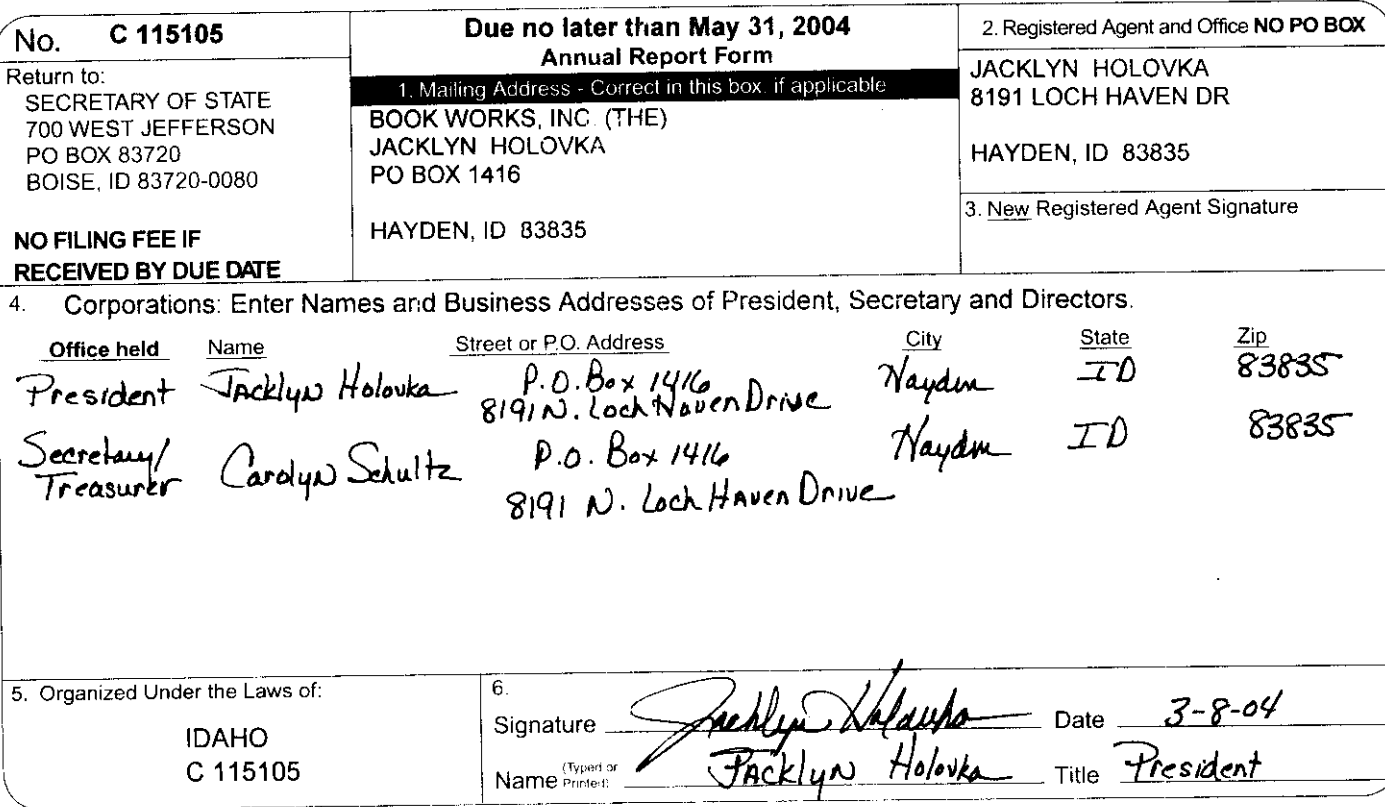 No. C 115105
Return to:
SECRETARY OF STATE
700 WEST JEFFERSON
PO BOX 83720
BOISE, ID 83720-0080
NO FILING FEE IF
RECEIVED BY DUE DATE
Due no later than May 31, 2004
Annual Report Form
1. Mailing Address - Correct in this box if applicable
BOOK WORKS, INC. (THE)
JACKLYN HOLOVKA
PO BOX 1416
HAYDEN, ID 83835
2. Registered Agent and Office NO PO BOX
JACKLYN HOLOVKA
8191 LOCH HAVEN DR
HAYDEN, ID 83835
3. New Registered Agent Signature
4. Corporations: Enter Names and Business Addresses of President, Secretary and Directors.
Office held Name Street or P.O. Address City State Zip
President Jacklyn Holovka P.O. Box 1416 Hayden ID 83835
8191 N. Loch Haven Drive
Secretary/ Carolyn Schultz P.O. Box 1416 Hayden ID 83835
Treasurer
8191 N. Loch Haven Drive
5. Organized Under the Laws of:
IDAHO
C 115105
6.
Signature Jacklyn Holovka Date 3-8-04
Name (Typed or Printed) Jacklyn Holovka Title President